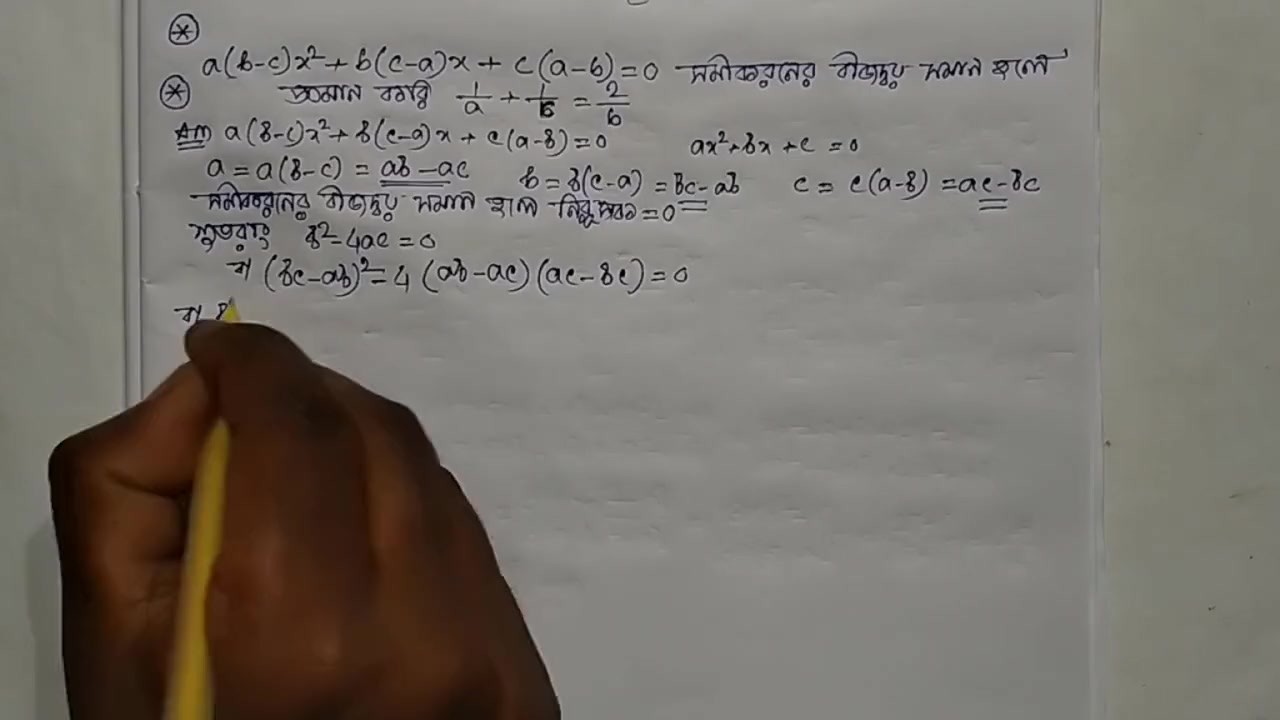 a(b-c)x²+b(c-a)x+c(a-b)=0 সমীকরনের বীজদ্বয় সমান হলে
প্রমান করি 1/a + 1/b = 2/b
Ans a(b-c)x²+b(c-a)x+c(a-b)=0 ax²+bx+c=0
a=a(b-c)=ab-ac b=b(c-a)=bc-ab c=c(a-b)=ac-bc
সমীকরনের বীজদ্বয় সমান হলে নিরূপক=0
সুতরাং b²-4ac=0
বা (bc-ab)²=4(ab-ac)(ac-bc)=0
বা